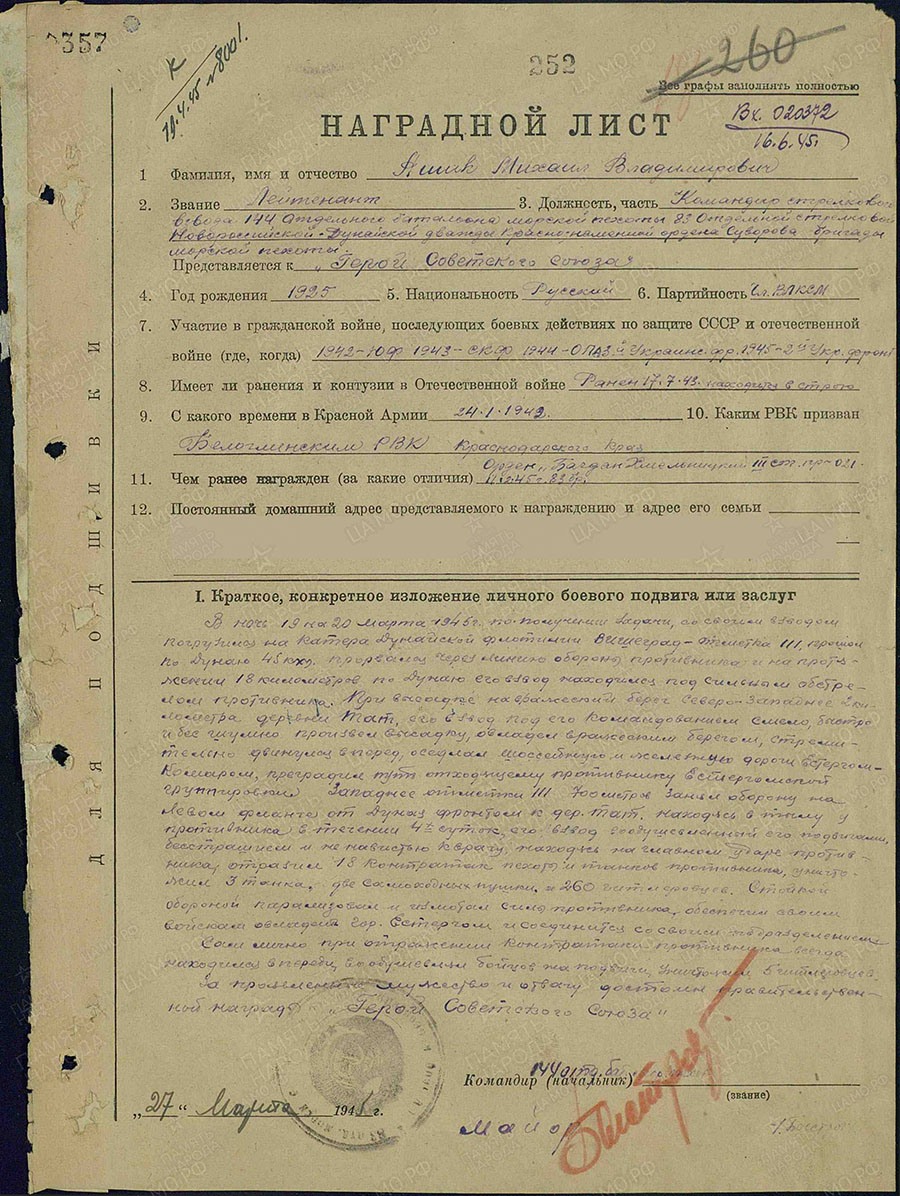 357
К
19.4.45 №8001.
252
260
Все графы заполнять полностью
Вх. 020372
16.6.45г.
НАГРАДНОЙ ЛИСТ
1 Фамилия, имя и отчество Ашик Михаил Владимирович
2. Звание Лейтенант 3. Должность, часть Командир стрелкового
взвода 144 Отдельного батальона морской пехоты 83 Отдельной стрелковой
Новороссийской-Дунайской дважды Краснознаменной ордена Суворова бригады
морской пехоты
Представляется к „Герой Советского Союза"
4. Год рождения 1925 5. Национальность Русский 6. Партийность Чл. ВЛКСМ
7. Участие в гражданской войне, последующих боевых действиях по защите СССР и отечественной
войне (где, когда) 1942-ЮФ 1943-СКФ 1944-ОПА 3й Украинс. фр. 1945-2й Укр. фронт
8. Имеет ли ранения и контузии в Отечественной войне Ранен 17.7.43. находясь в строю
9. С какого времени в Красной Армии 24.1.1943. 10. Каким РВК призван
Белоглинским РВК Краснодарского Края
Орден „Богдан Хмельницкий III ст. пр-021-
11. Чем ранее награжден (за какие отличия)
12. Постоянный домашний адрес представляемого к награждению и адрес его семьи
I. Краткое, конкретное изложение личного боевого подвига или заслуг
В ночь 19 на 20 марта 1945г. по получении задачи, со своим взводом
погрузился на катера Дунайской флотилии Вишеград-отметка III, прошел
по Дунаю 45 км, прорвался через линию обороны противника, и на протя-
жении 18 километров по Дунаю его взвод находился под сильным обстре-
лом противника. При высадке на вражеский берег Северо-Западнее 2 ки-
лометра деревни Тат, его взвод под его командованием смело, быстро
и бесшумно произвел высадку, овладел вражеским берегом, стреми-
тельно двинулся вперед, оседлал шоссейную и железную дороги Эстергом-
Комаром, преградил пути отходящему противнику Эстергомской
группировки. Западнее отметки III 700 метров занял оборону на
левом фланге от Дуная фронтом к дер. Тат. Находясь в тылу у
противника в течении 4х суток, его взвод воодушевленный его подвигами,
бесстрашием и ненавистью к врагу, находясь на главном ударе против-
ника, отразил 18 контратак пехоты и танков противника, уничто-
жил 3 танка, две самоходных пушки, и 260 гитлеровцев. Стойкой
обороной парализовал и измотал силы противника, обеспечил своим
войскам овладеть гор. Эстергом и соединится со своими подразделениями
Сам лично при отражении контратаки противника всегда
находился впереди, воодушевлял бойцов на подвиги, уничтожил 5 гитлеровцев
За проявленные мужество и отвагу достоин правительствен-
ной награды „Герой Советского Союза"
Командир (начальник) 144 отд. б
(звание)
„27" Марта 1945 г.
Майор
ДЛЯ ПОДШИВКИ